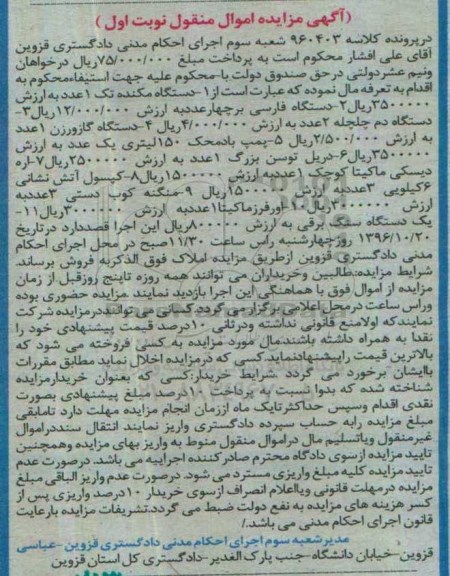 (آگهی مزایده اموال منقول نوبت اول)
درپرونده کلاسه ۹۶۰۴۰۳ شعبه سوم اجرای احکام مدنی دادگستری قزوین
آقای علی افشار محکوم است به پرداخت مبلغ ۷۵/۰۰۰/۰۰۰ریال درخواهان
ونیم عشردولتی درحق صندوق دولت با محکوم علیه جهت استیفاءمحکوم به
اقدام به تعرفه مال نموده که عبارت است از۱-دستگاه مکنده تک ۱عدد به ارزش
۳۵۰۰۰۰۰ریال۲-دستگاه فارسی برچهارعددبه ارزش ۱۲/۰۰۰/۰۰۰ریال۳-
دستگاه دم چلچله ۲عدد به ارزش ۴/۰۰۰/۰۰۰ریال ۴-دستگاه گازورزن ۱عدد
به ارزش ۲/۵۰۰/۰۰۰ریال ۵-پمپ بادمحک ۱۵۰لیتری یک عدد به ارزش
۳۵۰۰۰۰۰ریال۶-دریل توسن بزرگ ۱عددبه ارزش ۲۵۰۰۰۰۰ریال۷-اره
دیسکی ماکیتا کوچک ۱عددبه ارزش ۱۵۰۰۰۰۰ریال۸-کپسول آتش نشانی
۶کیلویی ۳عددبه ارزش ۱۵۰۰۰۰۰ریال ۹-منگنه کوب دستی ۳عددبه
ارزش ریال۱۰-اورفرزماکیتا۱عددبه ارزش ۳۰۰۰۰۰۰ریال۱۱-
یک دستگاه سنگ برقی به ارزش ۸۰۰۰۰۰ریال این اجرا قصددارد درتاریخ
۱۳۹۶/۱۰/۲۰ روزچهارشنبه راس ساعت ۱۱/۳۰صبح در محل اجرای احکام
مدنی دادگستری قزوین ازطریق مزایده املاک فوق الذکربه فروش برساند.
شرایط مزایده:طالبین وخریداران می توانند همه روزه تاپنج روزقبل از زمان
مزایده از اموال فوق با هماهنگی این اجرا بازدید نمایند مزایده حضوری بوده
وراس ساعت درمحل اعلامی برگزارمی گردد کسانی می تواننددرمزایده شرکت
نمایندکه اولامنع قانونی نداشته ودرثانی ۱۰درصد قیمت پیشنهادی خود را
نقدا به همراه داشته باشندمال مورد مزایده به کسی فروخته می شود که
بالاترین قیمت راپیشنهادنماید.کسی که درمزایده اخلال نماید مطابق مقررات
باایشان برخورد می گردد .شرایط خریدار:کسی که بعنوان خریدارمزایده
شناخته شده که بدوا نسبت به پرداخت ۱۰درصد مبلغ پیشنهادی بصورت
نقدی اقدام وسپس حداکثرتایک ماه اززمان انجام مزایده مهلت دارد تامابقی
مبلغ مزایده رابه حساب سپرده دادگستری واریز نمایند انتقال سنددراموال
غیرمنقول ویاتسلیم مال دراموال منقول منوط به واریز بهای مزایده وهمچنین
تایید مزایده ازسوی دادگاه محترم صادرکننده اجراییه می باشد. درصورت عدم
تایید مزایده کلیه مبلغ واریزی مسترد می شود. درصورت عدم واریز الباقی مبلغ
مزایده درمهلت قانونی ویااعلام انصراف ازسوی خریدار ۱۰درصد واریزی پس از
کسر هزینه های مزایده به نفع دولت ضبط می گردد.تشریفات مزایده بارعایت
قانون اجرای احکام مدنی می باشد./
مدیرشعبه سوم اجرای احکام مدنی دادگستری قزوین -عباسی
قزوین-خیابان دانشگاه-جنب پارک الغدیر-دادگستری کل استان قزوین